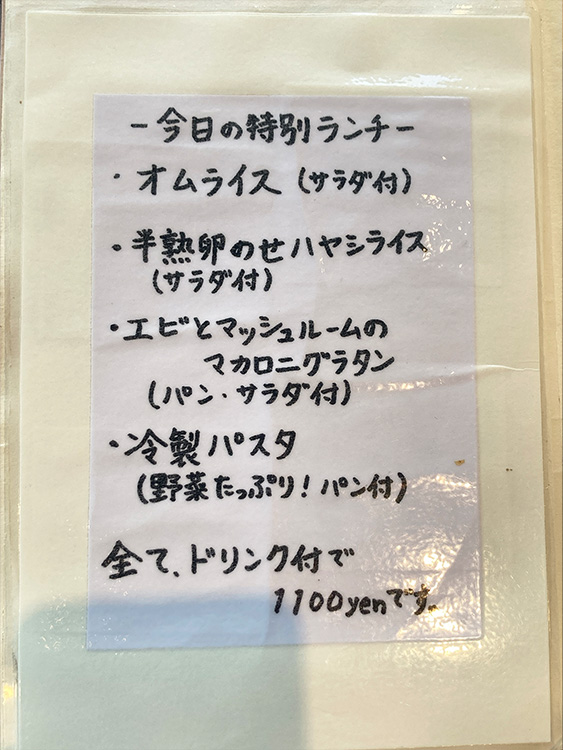 -今日の特別ランチ-
・オムライス(サラダ付)
・半熟卵のせハヤシライス
(サラダ付)
・エビとマッシュルームの
マカロニグラタン
(パン・サラダ付)
・冷製パスタ
(野菜たっぷり!パン付)
全て、ドリンク付で
1100yenです。